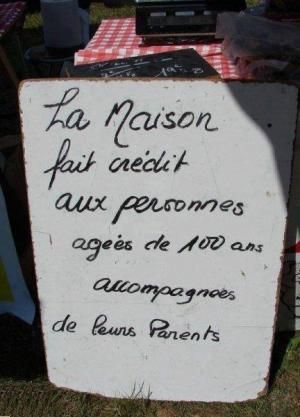 La Maison
fait crédit
aux personnes
ageés de 100 ans
accompagnées
de leurs Parents